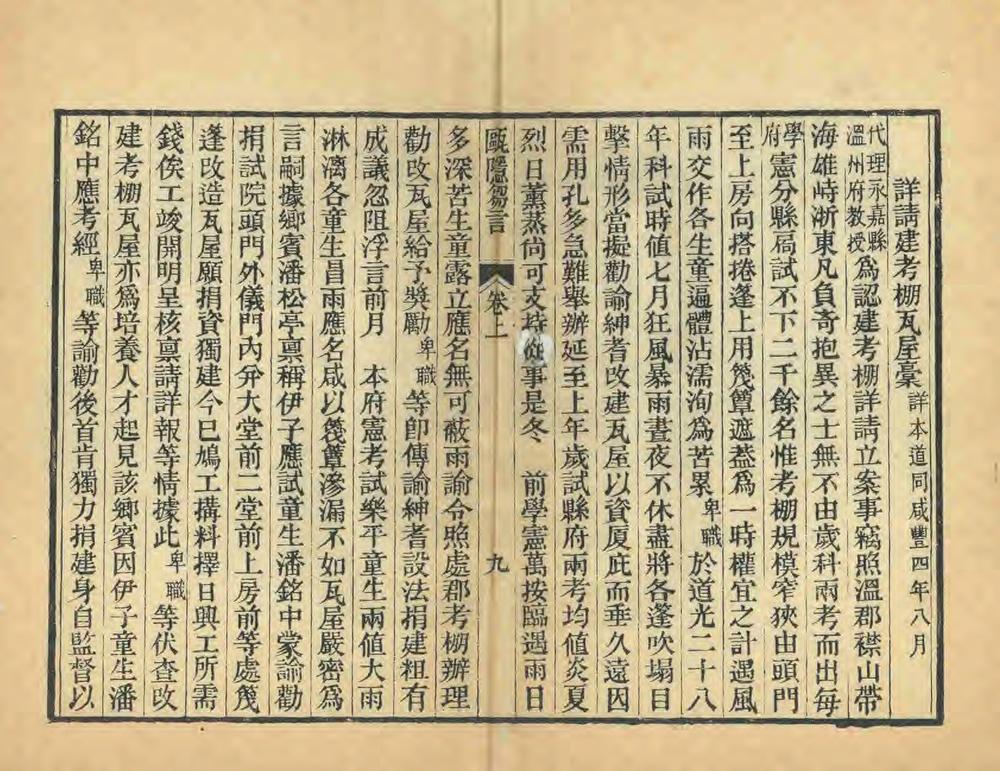 詳請建考棚瓦屋稾 詳本道同咸豐四年八月
代理永嘉縣溫州府教授爲認建考棚詳請立案事竊照溫郡襟山帶
海雄峙浙東凡負奇抱異之士無不由歲科兩考而出每
學府憲分縣扃試不下二千餘名惟考棚規模窄狹由頭門
至上房向搭捲蓬上用篾簟遮葢爲一時權宜之計遇風
雨交作各生童遍體沾濡洵爲苦累卑職於道光二十八
年科試時值七月狂風暴雨晝夜不休盡將各蓬吹塌目
擊情形當擬勸諭紳耆改建瓦屋以資厦庇而垂久遠因
需用孔多急難舉辦延至上年歲試縣府兩考均值炎夏
烈日薰蒸尙可支持從事是冬 前學憲萬按臨遇雨日
甌隱芻言 卷上 九
多深苦生童露立應名無可蔽雨諭令照處郡考棚辦理
勸改瓦屋給予獎勵卑職等卽傳諭紳耆設法捐建粗有
成議忽阻浮言前月 本府憲考試樂平童生兩值大雨
淋漓各童生昌雨應名咸以篾簟滲漏不如瓦屋嚴密爲
言嗣據鄉賓潘松亭稟稱伊子應試童生潘銘中蒙諭勸
捐試院頭門外儀門內分大堂前二堂前上房前等處篾
蓬改造瓦屋願捐資獨建今已鳩工搆料擇日興工所需
錢俟工竣開明呈核稟請詳報等情據此卑職等伏查改
建考棚瓦屋亦爲培養人才起見該鄉賓因伊子童生潘
銘中應考經卑職等諭勸後首肯獨力捐建身自監督以